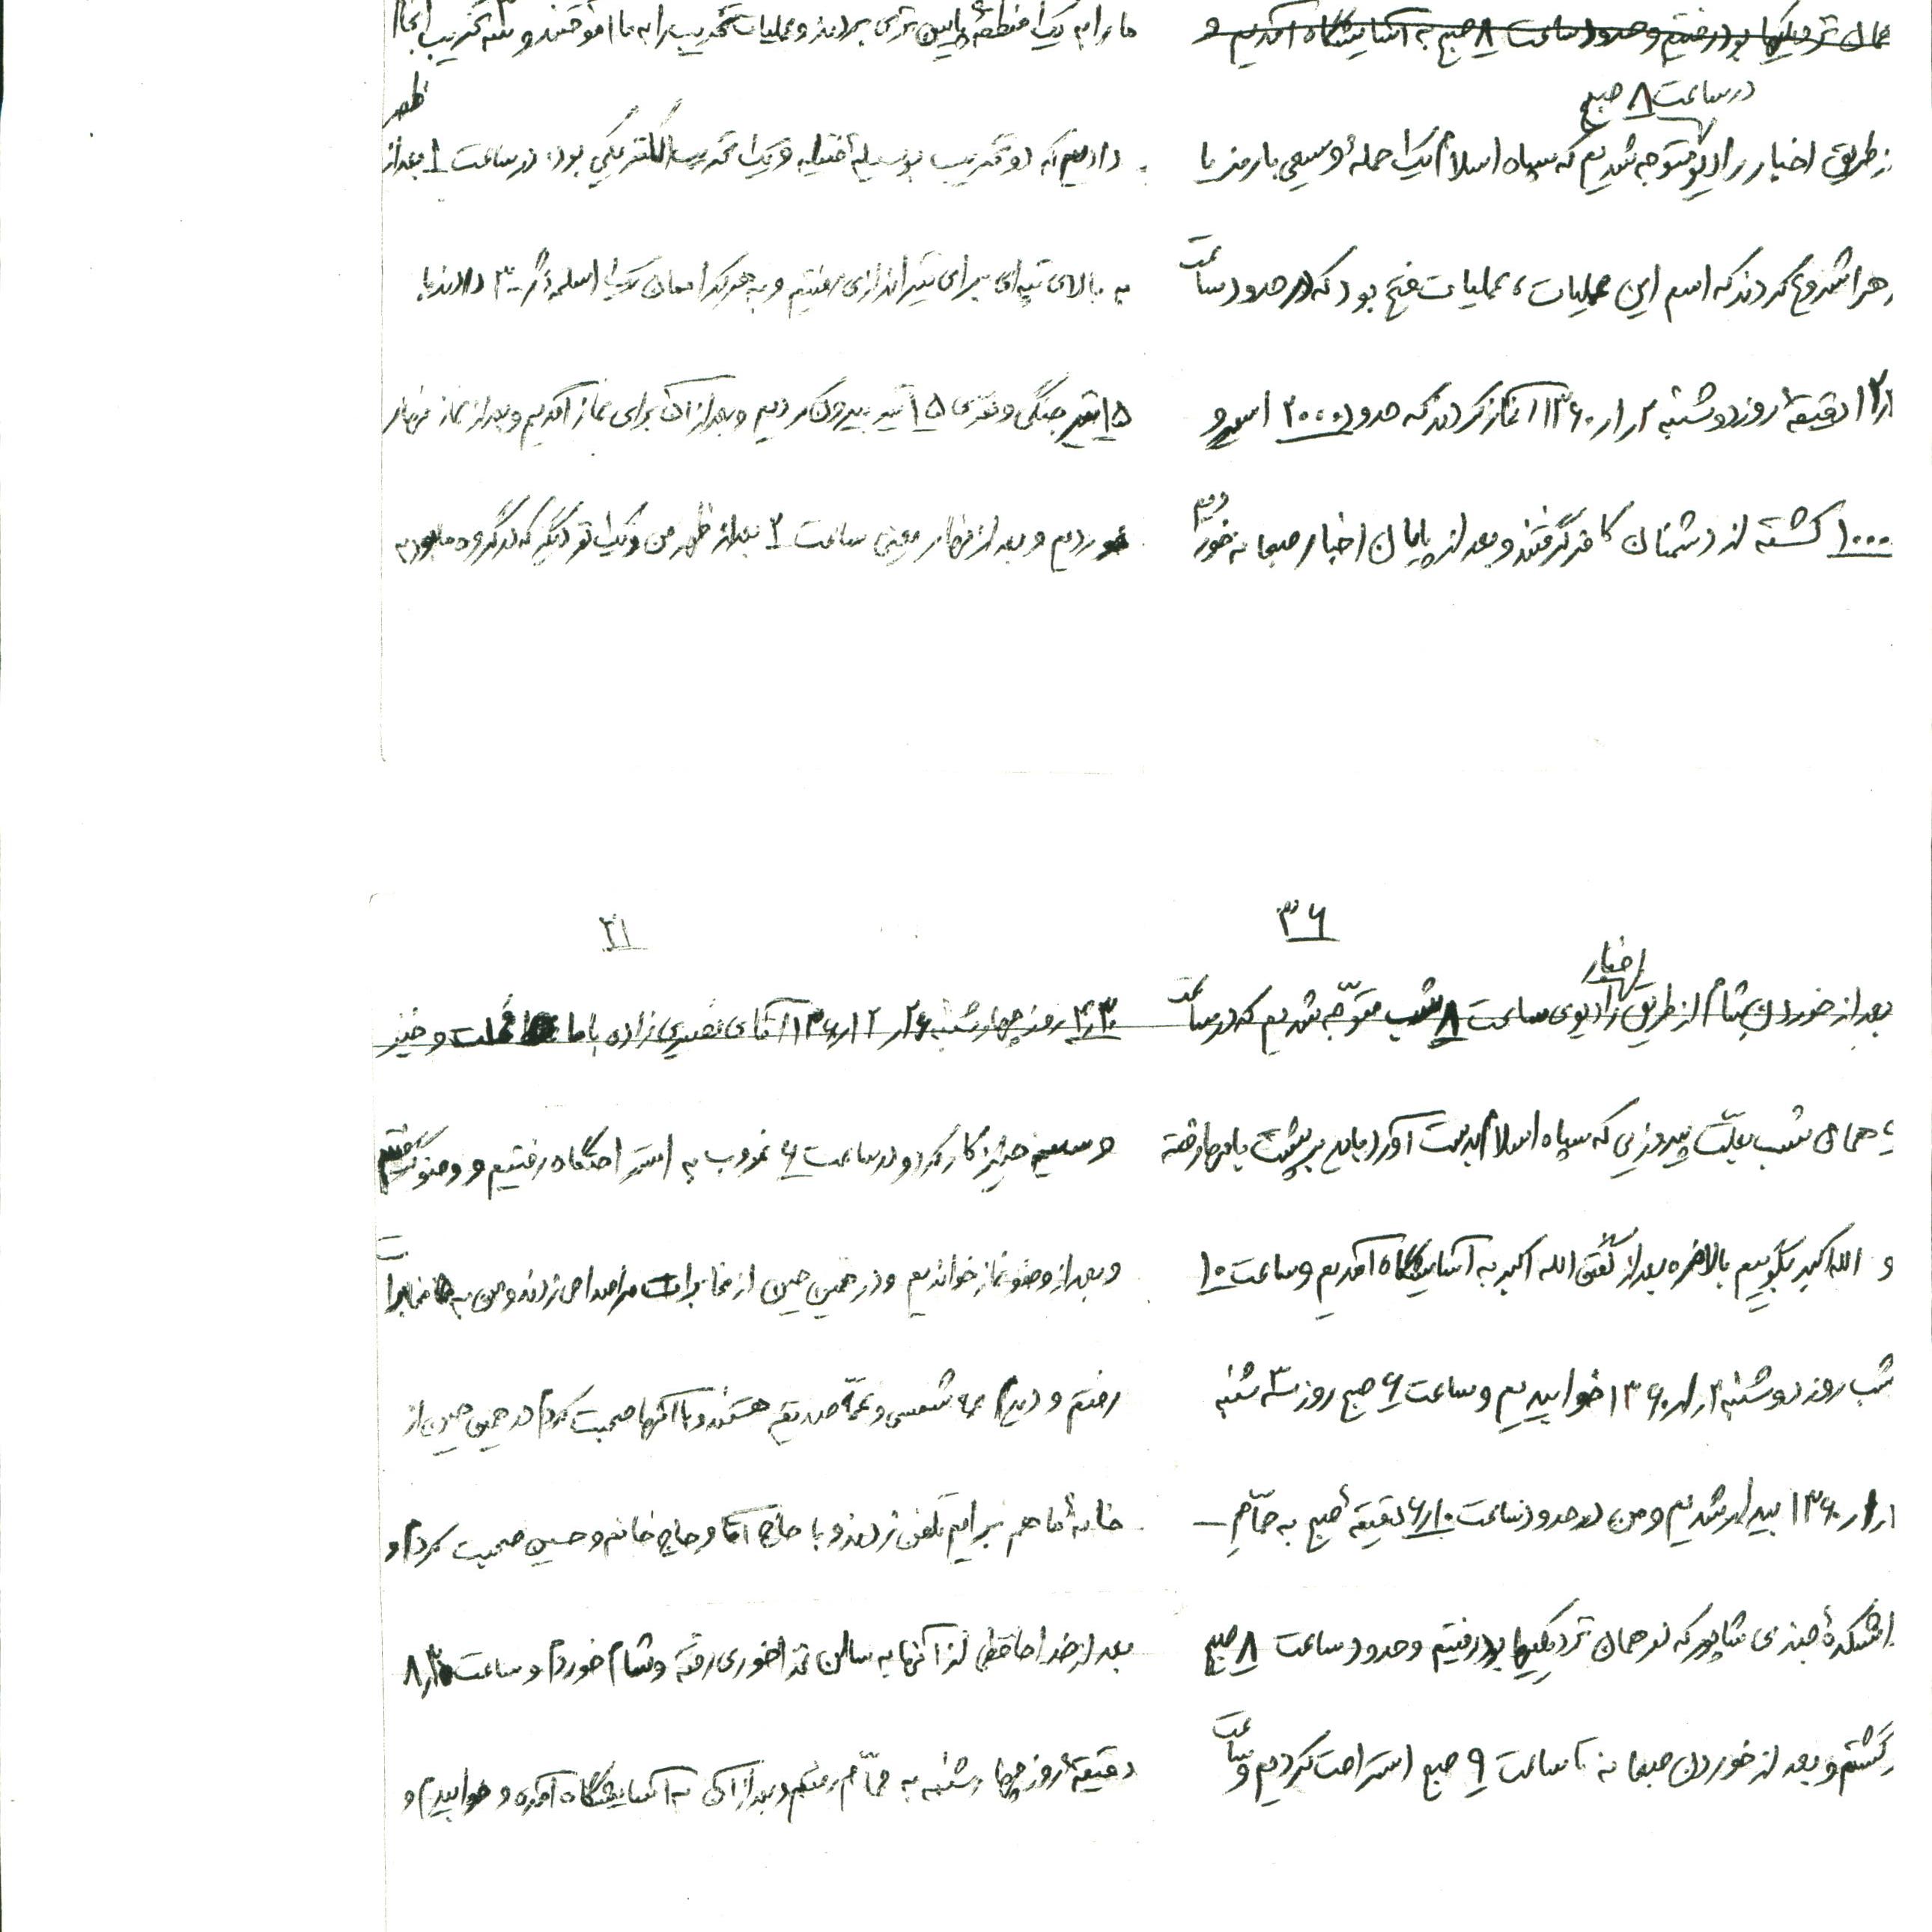 همان نزدیکیها بود رفتیم و حدود ساعت ۸ صبح به آسایشگاه آمدیم و
در ساعت ۸ صبح
از طریق اخبار رادیو متوجه شدیم که سپاه اسلام یک حملهٔ وسیعی با رمز یا
زهرا شروع کردند که اسم این عملیات، عملیات فتح بود که در حدود ساعت
دقیقهٔ روز دوشنبه ۲ر۱ر۱۳۶۰ آغاز کردند که حدود ۲۰۰۰ اسیر و
۱۰۰۰ کشته از دشمنان کافر گرفتند و بعد از پایان اخبار صبحانه خوردیم
ما را به یک منطقهٔ پایین تری بردند و عملیات تخریب را به ما آموختند و سه تخریب انجام
دادیم که دو تخریب بوسیلهٔ فتیله و یک تخریب الکتریکی بود، در ساعت ۱ بعد از ظهر
به بالای تپه‌ای برای تیراندازی رفتیم و به هر کداممان یک اسلحهٔ ژ-۳ دادند با
۱۵ تیر جنگی و نفری ۱۵ تیر بیرون کردیم و بعد از آن برای نماز آمدیم و بعد از نماز نهار
خوردیم و بعد از نهار یعنی ساعت ۲ بعد از ظهر من و یک نفر دیگر که در گروه ما بود به
۳۶
بعد از خوردن شام از طریق اخبار رادیوی ساعت ۸ شب متوجّه شدیم که در ساعت
همان شب بعلّت پیروزیی که سپاه اسلام بدست آورد باید بر پشت بامها رفته
و الله اکبر بگوییم بالاخره بعد از گفتن الله اکبر به آسایشگاه آمدیم و ساعت ۱۰
شب روز دوشنبه ۲ر۱ر۱۳۶۰ خوابیدیم و ساعت ۶ صبح روز سه شنبه
۱ر۱۳۶۰ بیدار شدیم و من در حدود ساعت ۶٫۱۰ دقیقهٔ صبح به حمّامِ
دانشکدهٔ جندی شاپور که در همان نزدیکیها بود رفتیم و حدود ساعت ۸ صبح
برگشتم و بعد از خوردن صبحانه تا ساعت ۹ صبح استراحت کردیم و ساعت
۲۱
۴٫۳۰ روز چهارشنبه ۲۶ر۱۲ر۱۳۶۰ آقای نصیری زاده با ما خفت و خیز
و سینه خیز کار کرد و در ساعت ۶ غروب به استراحتگاه رفتیم و وضو گرفتیم
و بعد از وضو نماز خواندیم و در همین حین از مخابرات مرا صدا می زدند و من به مخابرات
رفتم و دیدم عمه شمسی و عمّه صدیقه هستند و با آنها صحبت کردم در همین حین از
خانهٔ ما هم برایم تلفن زدند و با حاج آقا و حاج خانم و حسین صحبت کردم و
بعد از خداحافظی از آنها به سالن غذاخوری رفته و شام خوردم و ساعت ۸٫۳۰
دقیقهٔ روز چهارشنبه به حمّام رفتم و بعد از آن به آسایشگاه آمده و خوابیدم و